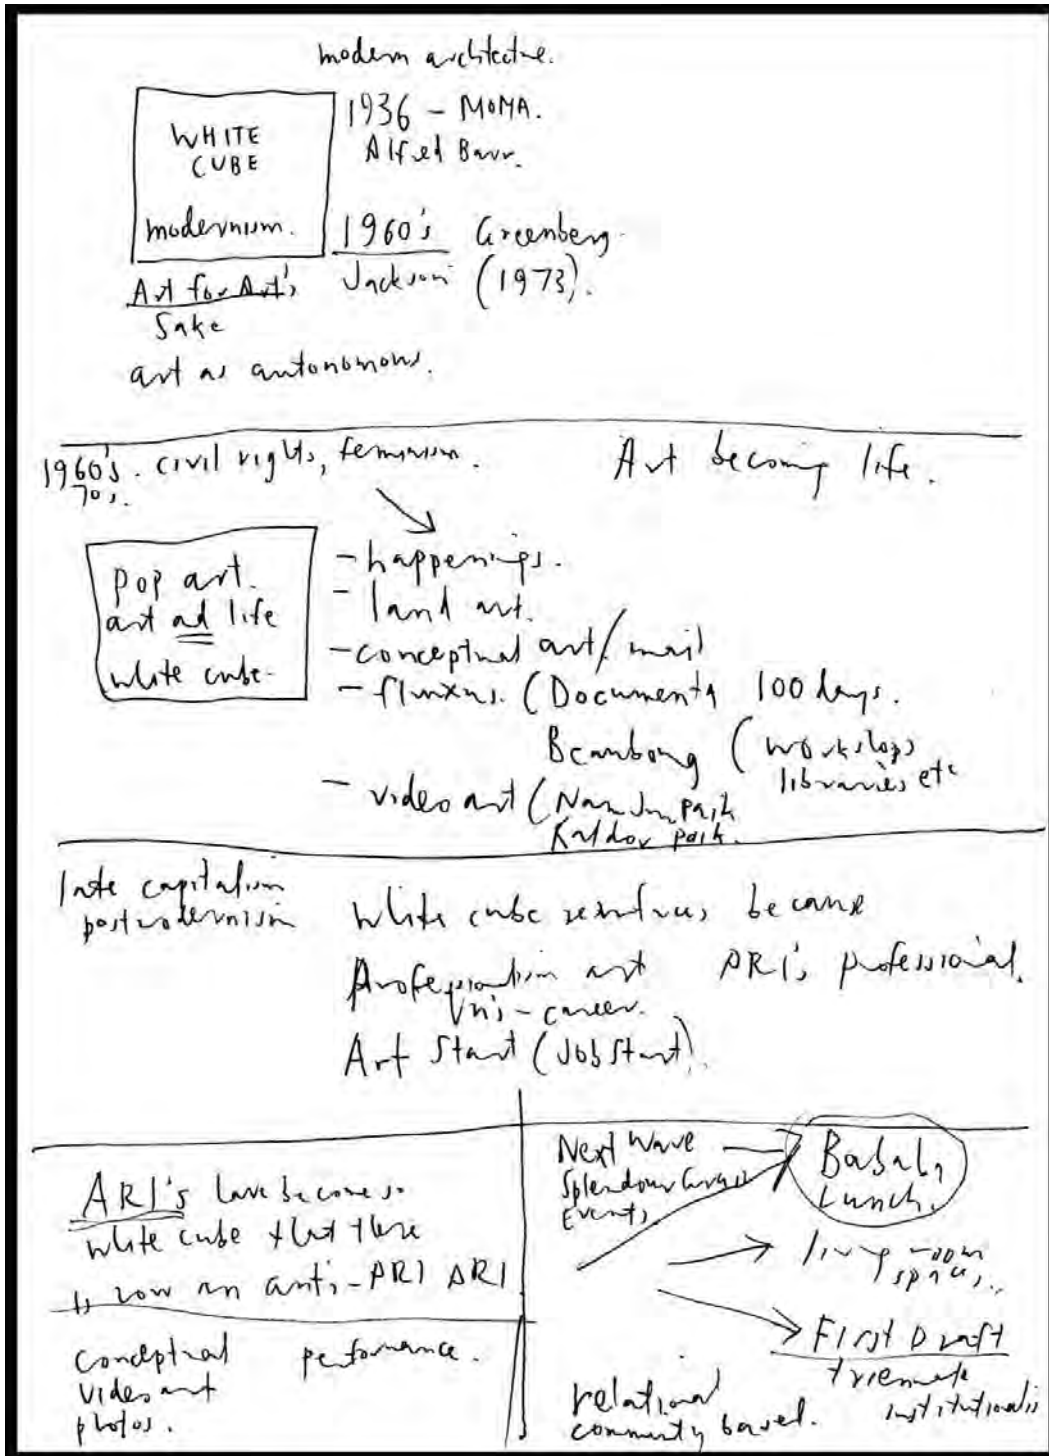 modern architecture.
WHITE
CUBE
modernism.
1936 - MOMA.
Alfred Barr.
1960's Greenberg.
Jackson (1973).
Art for Art's
Sake
art as autonomous.
1960's. civil rights, feminism.
70s.
Art becoming life.
pop art.
art ad life
white cube.
- happenings.
- land art.
- conceptual art/mail
- fluxus. (Documenta 100 days.
(workshops
libraries etc
- video art (Nam Jun Paik
Kaldor paik.
late capitalism
postmodernism
white cube because
art ARI's professional.
Uni's - career.
Art Start (JobStart).
ARI's have become so
white cube that there
is now an anti-ARI ARI
conceptual performance.
video art
photos.
Next Wave
Splendour
Events.
Lunch.
living room
spaces..
First Draft
relational
community based.